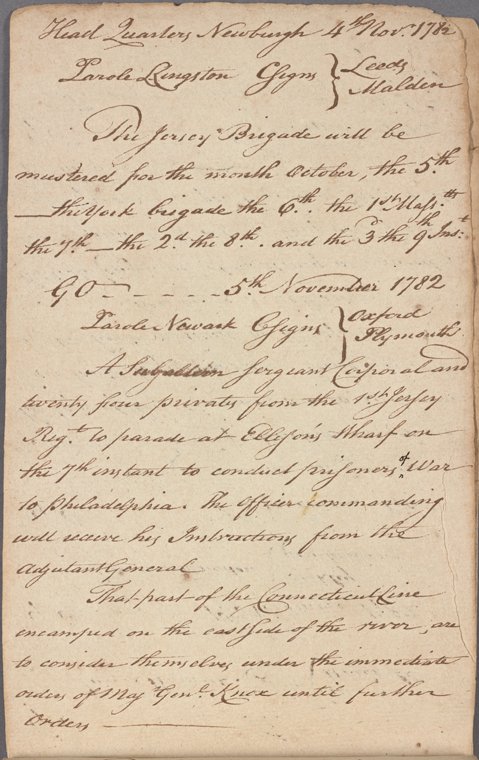 Head Quarters Newburgh 4th Novr. 1782
Parole Kingston CSigns } Leeds
Malden
The Jersey Brigade will be
mustered for the month October, the 5th.
— the York brigade the 6th. the 1st Masstts
the 7th — the 2d. the 8th. and the 3d the 9th Inst.
GO - - - - - 5th November 1782
Parole Newark CSigns } Oxford
Plymouth
A Subaltern Sergeant Corporal and
twenty four privates from the 1st Jersey
Regt. to parade at Ellison's Wharf on
the 7th instant to conduct prisoners of War
to Philadelphia. The Officer commanding
will receive his Instructions from the
Adjutant General
That part of the Connecticut Line
encamped on the east Side of the river, are
to consider themselves under the immediate
orders of Maj Genl. Knox until further
orders —